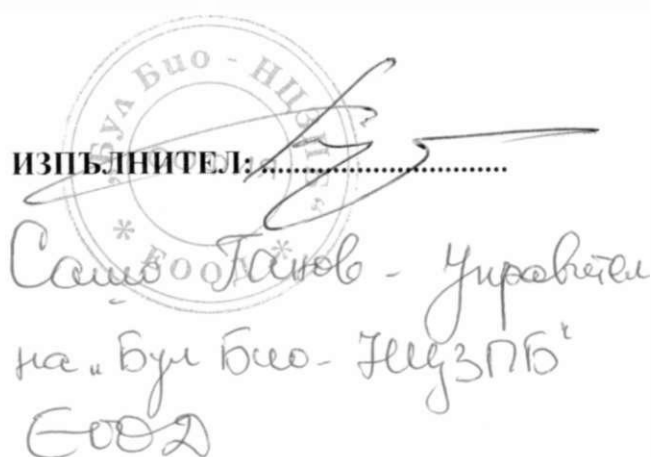 „Бул Био - НЦЗПБ“
София
* ЕООД *
ИЗПЪЛНИТЕЛ: ..............................
Сашо Ганов - Управител
на „Бул Био - НЦЗПБ“
ЕООД